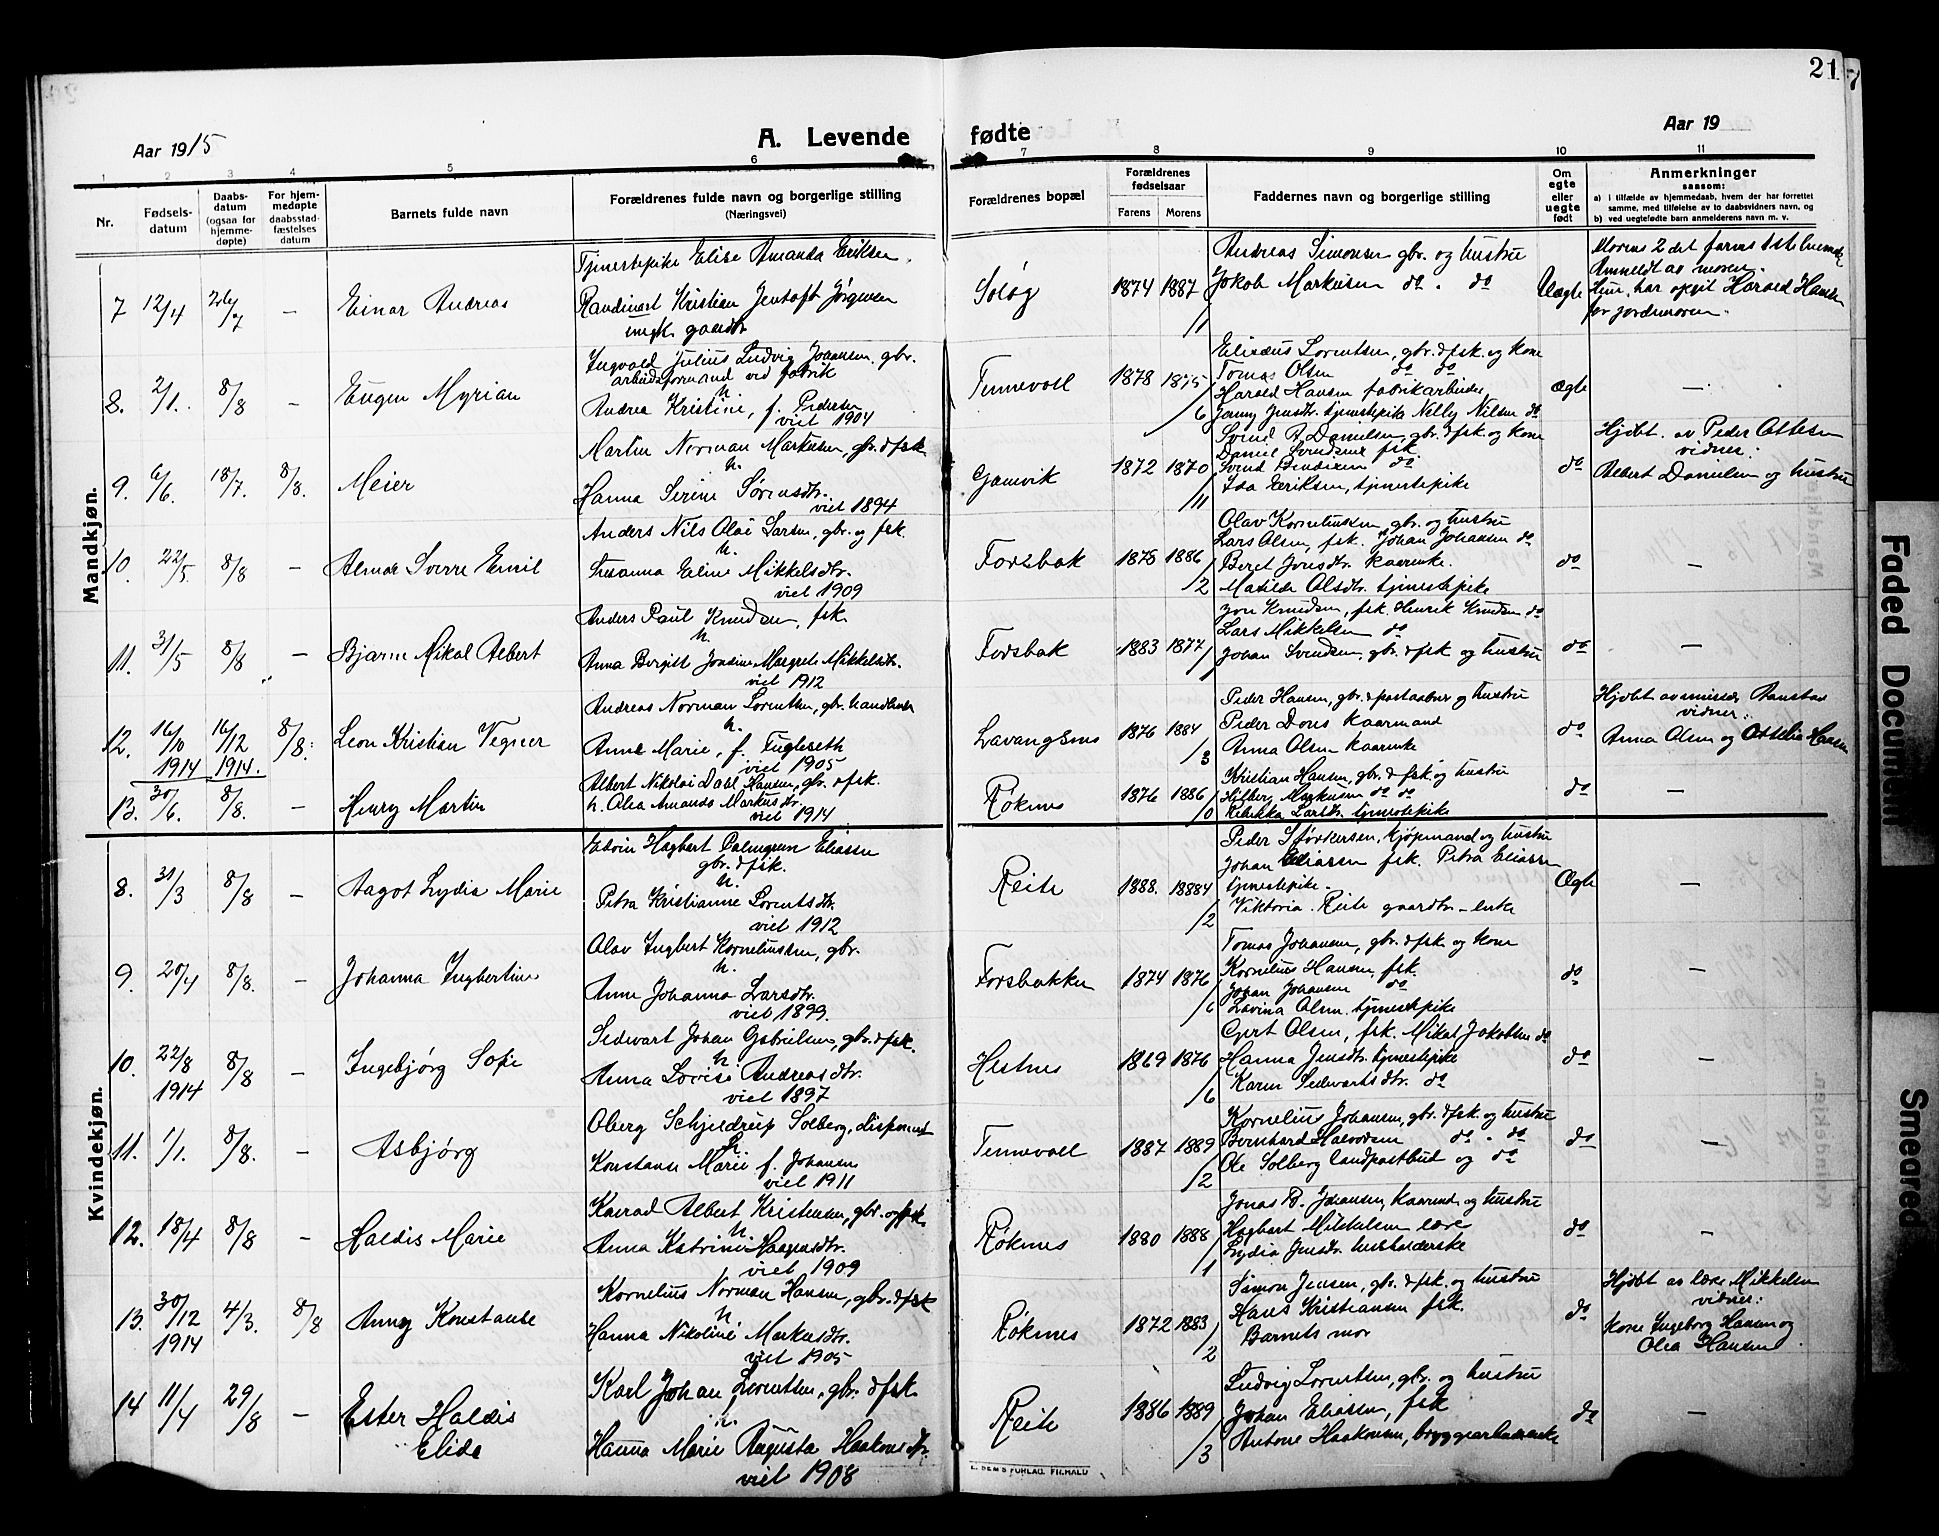 21
7
Aar 1915
A. Levende fødte
Aar 19
1 2 3 4 5 6 7 8 9 10 11
Nr.
Fødsels-
datum
Daabs-
datum
(ogsaa for
hjemme-
døpte)
For hjem-
medøpte
daabsstad-
fæstelses
datum
Barnets fulde navn
Forældrenes fulde navn og borgerlige stilling
(Næringsvei)
Forældrenes bopæl
Forældrenes
fødselsaar
Farens Morens
Faddernes navn og borgerlige stilling
Om
egte
eller
uegte
født
Anmerkninger
saasom:
a) i tilfælde av hjemmedaab, hvem der har forrettet
samme, med tilføielse av to daabsvidners navn, og
b) ved uegtefødte barn anmelderens navn m. v.
Mandkjøn.
7 12/4 26/7 — Einar Andreas
Tjenestepike Elise Amanda Eriksen.
Kristian Jentoft Jørgensen
ungk. gaardbr
Soløg 1874 1887/1
Andreas Simonsen gbr. og hustru
Jakob Markusen do. do
Uægte
Morens 2det farens 1ste
Anmeldt av moren.
Hun har opgit Harald Hansen
for jordmoren.
8. 2/1. 8/8 — Eugen Myrian
Ingvald Julius Ludvig Johansen. gbr.
arbeidsformand ved fabrik
h.
Andrea Kristine, f. Pedersen
viet 1904
Tennevoll 1878 1875/6
Elisæus Lorentsen, gbr. & fsk. og kone
Tomas Olsen do do
Harald Hansen fabrikarbeider
Jenny Jensdtr. tjenestepike Nelly Nilsen do
Ægte —
9. 6/6. 18/7. 8/8. Meier
Martin Norman Markusen, gbr. & fsk.
h.
Hanna Serine Sørensdtr.
viet 1894
Gamvik 1872 1870/11
Svend A Danielsen, gbr. & fsk. og kone
Daniel Svendsen fsk.
Svend Bendixen do
Ida Eriksen, tjenestepike
do
Hjdbt. av Peder Ottesen
vidner:
Albert Danielsen og hustru
10. 22/5 8/8 — Almar Sverre Emil
Anders Nils Olai Larsen, gbr. og fsk.
h.
Susanna Eline Mikkelsdtr.
viet 1909
Forsbak 1875 1886/2
Olav Korneliussen, gbr. og hustru
Lars Olsen, fsk. Johan Johansen do
Beret Jonsdtr. kaarenke.
Matilde Olsdtr. tjenestepike
do —
11. 31/5 8/8 — Bjarne Mikal Albert
Anders Paul Knudsen, fsk.
h.
Anna Bergitt Josine Margrete Mikkelsdtr.
viet 1912
Forsbak 1883 1877/1
Jon Knudsen, fsk. Henrik Knudsen do
Lars Mikkelsen do
Johan Svendsen, gbr. & fsk og hustru
do —
12. 16/10 1914 16/12 1914. 8/8. Leon Kristian Vegner
Andreas Norman Lorentsen, gbr. handlende
h.
Anne Marie, f. Fugleseth
viet 1905
Lavangsnes 1876 1884/3
Peder Hansen, gbr. & postaabner og hustru
Peder Dons kaarmand
Anna Olsen kaarenke
do
Hjdbt av
vidner:
Anna Olsen og Ottelie Hansen
13. 30/6. 8/8. — Henry Martin
Albert Nikolai Dahl Hansen, gbr. & fsk.
h. Olea Amanda Markusdtr.
viet 1914
Røknes 1876 1886/0
Kristian Hansen, gbr. & fsk. og hustru
Hilberg Markusen do do
Rebekka Larsdtr. tjenestepike
do —
Kvindekjøn.
8. 31/3 8/8 — Aagot Lydia Marie
Edvin Hagbert Palmgren Eliassen
gbr. & fsk.
h.
Petra Kristianne Lorentsdtr.
viet 1912
Reite 1888. 18884/2
Peder Størkersen, kjøpmand og hustru
Johan Eliassen fsk. Petra Eliassen
tjenestepike.
Viktoria Reite gaardbr-enke
Ægte —
9. 20/4 8/8. — Johanna Ingbertine
Olav Ingbert Korneliussen, gbr.
h.
Anne Johanna Larsdtr.
viet 1899.
Forsbakken 1874 1876/6
Tomas Johansen, gbr. & fsk og kone
Kornelius Hansen, fsk.
Johan Johansen do
Lavina Olsen. tjenestepike
do —
10. 22/8 1914 8/8 — Ingebjørg Sofie
Sedevart Johan Gabrielsen, gbr. & fsk.
h
Anna Lovise Andreasdtr.
viet 1897
Hestnes 1869 1876/6
Gert Olsen, fsk. Mikal Jakobsen do
Hanna Jensdtr. tjenestepike
Karen Sedevartsdtr. do
do —
11. 1/1. 8/8. — Asbjørg
Oberg Schjeldrup Solberg, disponent
h.
Konstanse Marie f. Johansen
viet 1911
Tennevoll 1887 1889/2
Kornelius Johansen, gbr. & fsk. og hustru
Bernhard Halvorsen do. do
Ole Solberg landpostbud og do
do —
12. 18/4 8/8 — Haldis Marie
Konrad Albert Kristensen, gbr. og fsk.
h.
Anna Katrine Haagensdtr.
viet 1909
Røknes 1880 1888/1
Jonas B. Johansen, kaarmd. og hustru
Hagbart Mikkelsen lære
Lydia Jensdtr. husholderske
do —
13. 30/12 1914 4/3. 8/8 Anny Konstanse
Kornelius Norman Hansen, gbr. & fsk
h.
Hanna Nikoline Markusdtr.
viet 1905
Røknes 1872 1883/2
Simon Jensen, gbr. & fsk. og hustru
Hans Kristiansen fsk.
Barnets mor
do
Hjdbt av lære Mikkelsen
vidner:
Kone Ingeborg Hansen og
Olea Hansen
14 11/4 29/8 — Ester Haldis
Elida
Karl Johan Lorentsen, gbr. & fsk.
h.
Hanna Marie Augusta Haakonsdtr.
viet 1908
Reite 1886 1889/3
Ludvig Lorentsen, gbr. og hustru
Johan Eliassen, fsk
Antone Haakonsen,
do —
E. SEM'S FORLAG. FR.HALD
Faded Document
Smeared